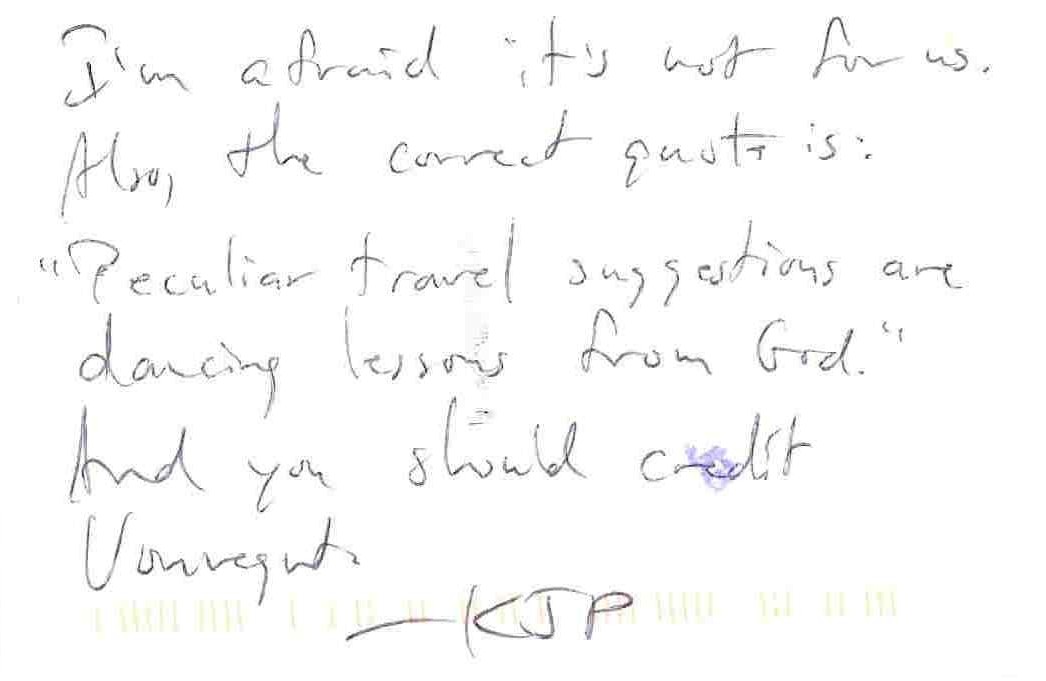 I'm afraid it's not for us.
Also, the correct quote is:
"Peculiar travel suggestions are
dancing lessons from God."
And you should credit
Vonnegut.
—KJP